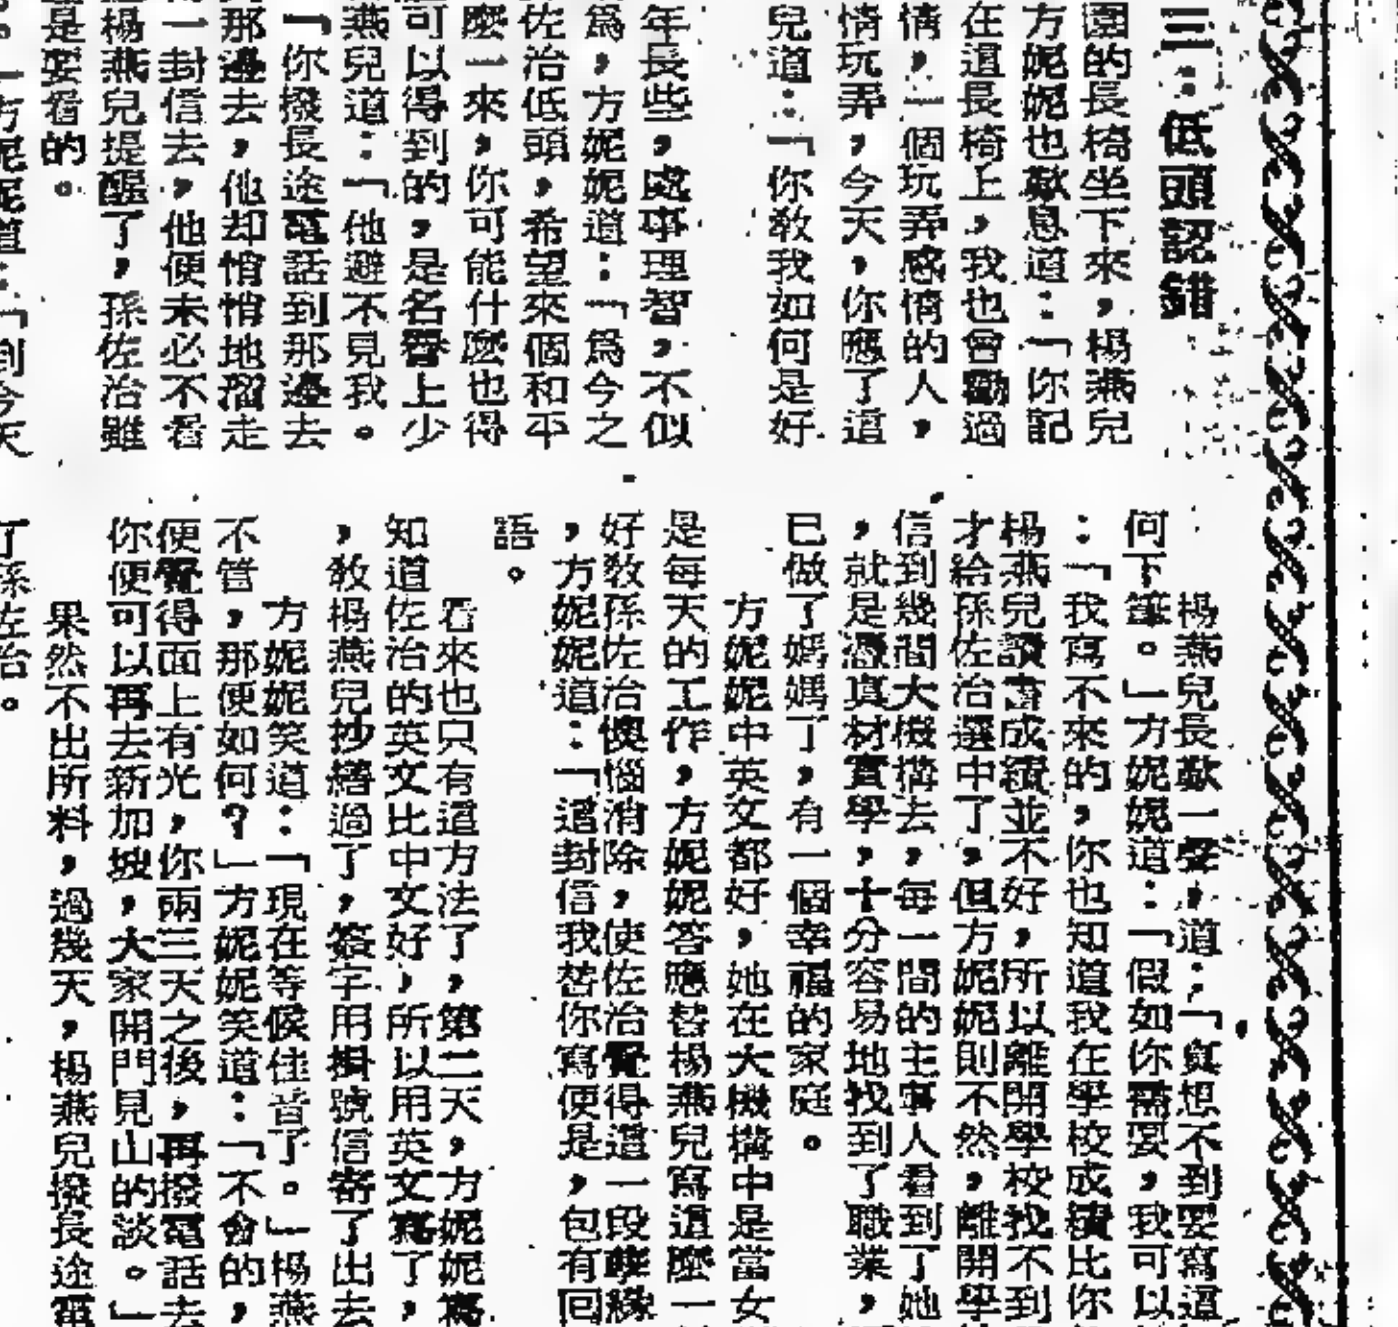 三：低頭認錯
園的長椅坐下來，楊燕兒
方妮妮也歎息道：「你記
在這長椅上，我也曾勸過
情，一個玩弄感情的人，
情玩弄，今天，你應了這
兒道：「你敎我如何是好
年長些，處事理智，不似
爲，方妮妮道：「爲今之
佐治低頭，希望來個和平
麼一來，你可能什麼也得
可以得到的，是名譽上少
燕兒道：「他避不見我。
「你撥長途電話到那邊去
那邊去，他却悄悄地溜走
一封信去，他便未必不看
楊燕兒提醒了，孫佐治雖
是要看的。
方妮妮道：「到今天
楊燕兒長歎一聲，道：「眞想不到要寫這
何下筆。」方妮妮道：「假如你需要，我可以
：「我寫不來的，你也知道我在學校成績比你
楊燕兒讀書成績並不好，所以離開學校找不到
才給孫佐治選中了，但方妮妮則不然，離開學
信到幾間大機構去，每一間的主事人看到了她
，就是憑眞材實學，十分容易地找到了職業，
已做了媽媽了，有一個幸福的家庭。
方妮妮中英文都好，她在大機構中是當女
是每天的工作，方妮妮答應替楊燕兒寫這麼一
好敎孫佐治懊惱消除，使佐治覺得這一段孽緣
，方妮妮道：「這封信我替你寫便是，包有回
語。
看來也只有這方法了，第二天，方妮妮寫
知道佐治的英文比中文好，所以用英文寫了，
，敎楊燕兒抄繕過了，簽字用掛號信寄了出去
方妮妮笑道：「現在等候佳音了。」楊燕
不管，那便如何？」方妮妮笑道：「不會的，
便覺得面上有光，你兩三天之後，再撥電話去
你便可以再去新加坡，大家開門見山的談。」
果然不出所料，過幾天，楊燕兒撥長途電
了孫佐治。